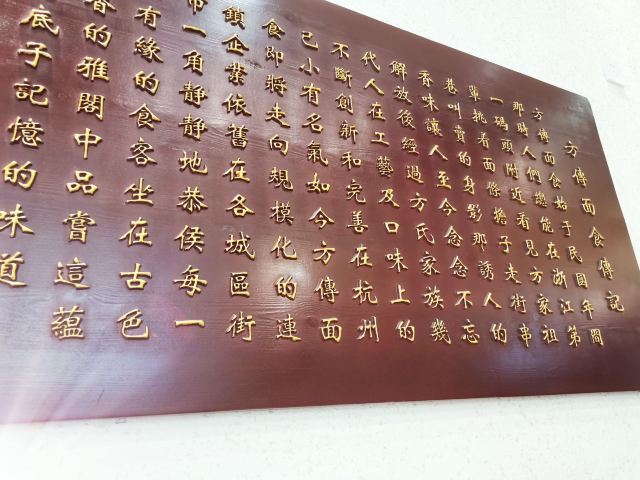 方傳面食傳記
方傳面食始于民國年間
那時人們總能在浙江第
一碼頭附近看見方家祖
輩挑着面條擔子走街串
巷叫賣的身影那誘人的
香味讓人至今念念不忘
解放後經過方氏家族幾
代人在工藝及口味上的
不斷創新和完善在杭州
已小有名氣如今方傳面
食即將走向規模化的連
鎖企業依舊在各城區街
一角靜靜地恭侯每一
有緣的食客坐在古色
香的雅閣中品嘗這蘊
底子記憶的味道